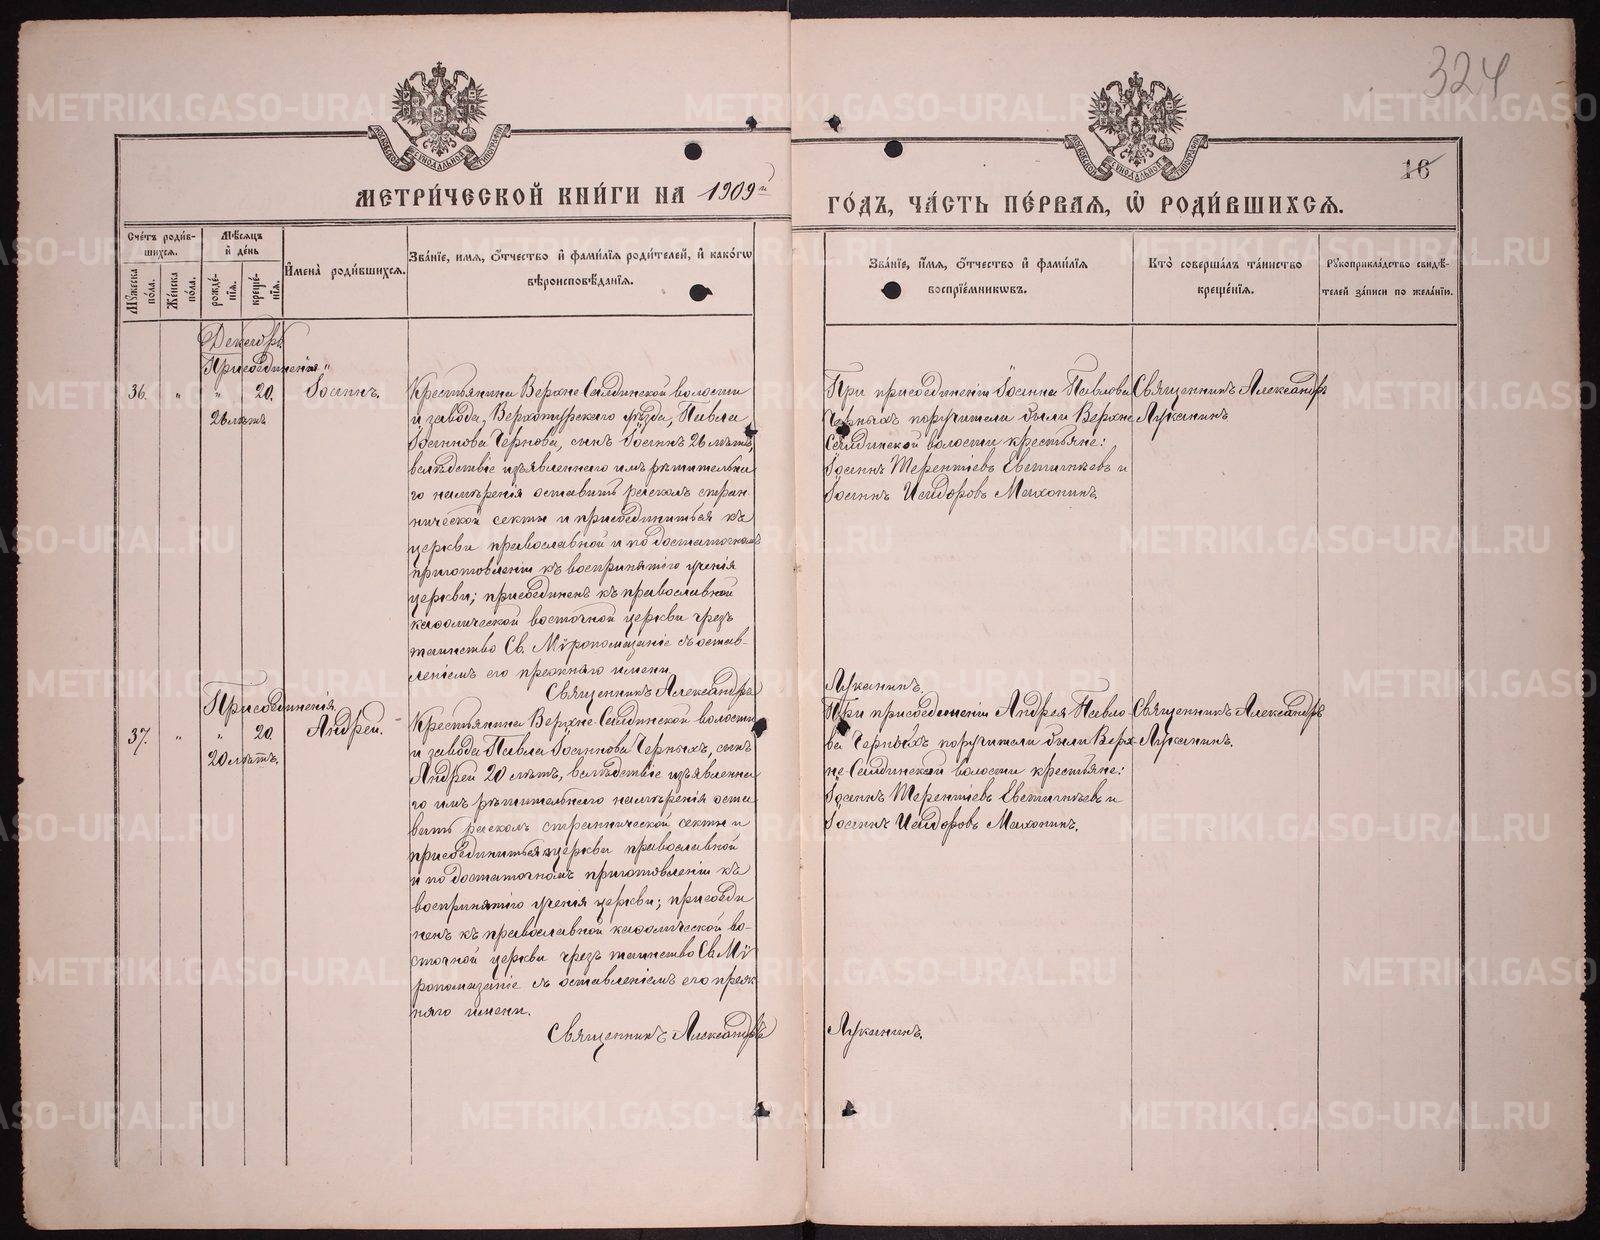 324
16
МЕТРИ́ЧЕСКОЙ КНИ́ГИ НА 1909й
ГО́ДЪ, ЧА́СТЬ ПЕ́РВАЯ, Ѡ РОДИ́ВШИХСЯ.
Сче́тъ роди́в-
шихся.
Мꙋжеска по́ла.
Же́нска по́ла.
Мѣ́сяцъ
и҆ де́нь
рожде́-
нїя.
креще́-
нїя.
И҆мена̀ роди́вшихся.
Зва́нїе, имя, ѻ҆́тчество и҆ фами́лїя роди́телей, и҆ како́гѡ
вѣроисповѣ́данїя.
Зва́нїе, и҆́мя, ѻ҆́тчество и҆ фами́лїя
воспрїе́мникѡвъ.
Кто̀ соверша́лъ та́инство
креще́нїя.
Рꙋкоприкла́дство свидѣ́-
телей за́писи по жела́нїю.
Декабрь
Присоединенія „
36. „ „ 20. Іоаннъ.
26 лѣтъ
Крестьянина Верхне-Салдинской волости
и завода, Верхотурскаго уѣзда, Павла
Іоаннова Чернова, сынъ Іоаннъ 26 лѣтъ,
вслѣдствіе изъявленнаго имъ рѣшительна
го намѣренія оставить расколъ стран
нической секты и присоединиться къ
церкви православной и по достаточномъ
приготовленіи къ воспринятію ученія
церкви; присоединенъ къ православной
каѳолической восточной церкви чрезъ
таинство Св. Мѵропомазаніе съ остав-
леніемъ его прежняго имени.
Священникъ Александръ
Луканинъ.
При присоединеніи Іоанна Павлова
Черныхъ поручители были Верхне
Салдинской волости крестьяне:
Іоаннъ Терентіевъ Евстигнѣевъ и
Іоаннъ Исидоровъ Махонинъ.
Священникъ Александръ
Луканинъ.
Присоединенія
37. „ „ 20 Андрей.
20 лѣтъ.
Крестьянина Верхне-Салдинской волости
и завода Павла Іоаннова Черныхъ, сынъ
Андрей 20 лѣтъ, вслѣдствіе изъявленна
го имъ рѣшительнаго намѣренія оста
вить расколъ страннической секты и
присоединиться къ церкви православной
и по достаточномъ приготовленіи къ
воспринятію ученія церкви; присоеди
ненъ къ православной каѳолической во-
сточной церкви чрезъ таинство Св. Мѵ
ропомазаніе съ оставленіемъ его преж
няго имени.
Священникъ Александръ
Луканинъ.
При присоединеніи Андрея Павло
ва Черныхъ поручители были Верх
не-Салдинской волости крестьяне:
Іоаннъ Терентіевъ Евстигнѣевъ и
Іоаннъ Исидоровъ Махонинъ.
Священникъ Александръ
Луканинъ.
METRIKI.GASO-URAL.RU